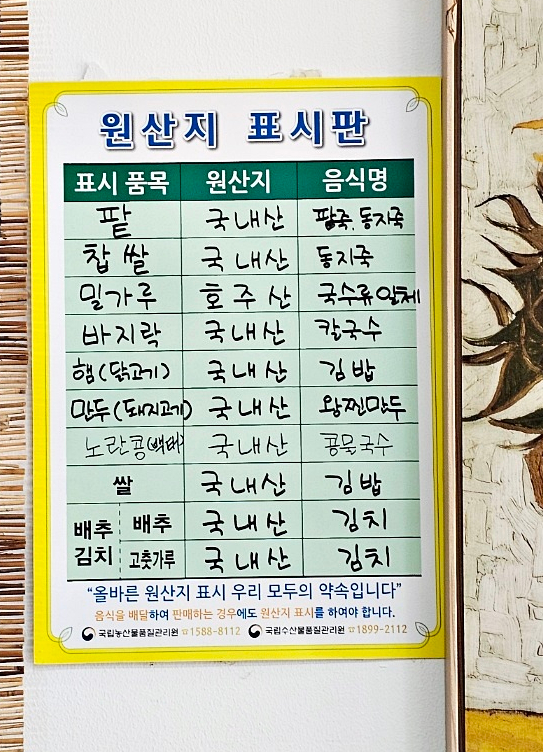 원산지 표시판
표시 품목 원산지 음식명
팥 국내산 팥죽, 동지죽
찹쌀 국내산 동지죽
밀가루 호주산 국수류 일체
바지락 국내산 칼국수
햄(닭고기) 국내산 김밥
만두(돼지고기) 국내산 왕찐만두
노란콩(백태) 국내산 콩물국수
쌀 국내산 김밥
배추김치 배추 국내산 김치
고춧가루 국내산 김치
"올바른 원산지 표시 우리 모두의 약속입니다"
음식을 배달하여 판매하는 경우에도 원산지 표시를 하여야 합니다.
국립농산물품질관리원 ☎1588-8112 국립수산물품질관리원 ☎1899-2112